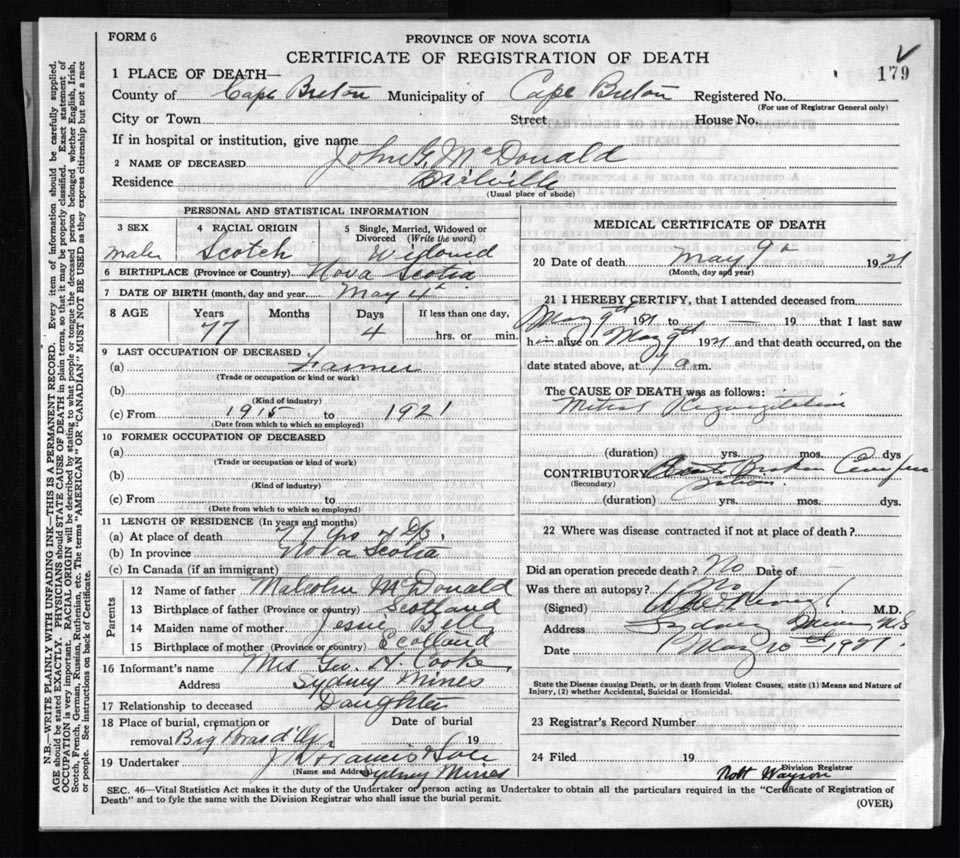 FORM 6
PROVINCE OF NOVA SCOTIA
CERTIFICATE OF REGISTRATION OF DEATH
179
1 PLACE OF DEATH—
County of Cape Breton Municipality of Cape Breton Registered No.
(For use of Registrar General only)
City or Town Street House No.
If in hospital or institution, give name
2 NAME OF DECEASED John G. McDonald
Residence
(Usual place of abode)
PERSONAL AND STATISTICAL INFORMATION
3 SEX
Male
4 RACIAL ORIGIN
Scotch
5 Single, Married, Widowed or Divorced (Write the word)
Widowed
6 BIRTHPLACE (Province or Country) Nova Scotia
7 DATE OF BIRTH (month, day and year) May 4th
8 AGE Years Months Days If less than one day,
77 4 hrs. or min.
9 LAST OCCUPATION OF DECEASED
(a) Farmer
(Trade or occupation or kind or work)
(b)
(Kind of industry)
(c) From 1915 to 1921
(Date from which to which so employed)
10 FORMER OCCUPATION OF DECEASED
(a)
(Trade or occupation or kind of work)
(b)
(Kind of industry)
(c) From to
(Date from which to which so employed)
11 LENGTH OF RESIDENCE (In years and months)
(a) At place of death 77 yrs 4
(b) In province Nova Scotia
(c) In Canada (if an immigrant)
Parents
12 Name of father Malcolm McDonald
13 Birthplace of father (Province or country) Scotland
14 Maiden name of mother Jessie Bell
15 Birthplace of mother (Province or country) Scotland
16 Informant's name Mrs Geo. H. Cooke
Address Sydney Mines
17 Relationship to deceased Daughter
18 Place of burial, cremation or removal Big Bras d'Or
Date of burial 19
19 Undertaker Francis
(Name and Address) Sydney Mines
MEDICAL CERTIFICATE OF DEATH
20 Date of death May 9th 1921
(Month, day and year)
21 I HEREBY CERTIFY, that I attended deceased from
May 9th 1921 to — 19 — that I last saw
him alive on May 9th 1921 and that death occurred, on the
date stated above, at a m.
The CAUSE OF DEATH was as follows:
Mitral Regurgitation
(duration) yrs. mos. dys
CONTRIBUTORY Broken
(Secondary)
(duration) yrs. mos. dys.
22 Where was disease contracted if not at place of death?
Did an operation precede death? No Date of
Was there an autopsy? No
(Signed) M.D.
Address Sydney Mines N.S
Date May 10th 1921
State the Disease causing Death, or in death from Violent Causes, state (1) Means and Nature of
Injury, (2) whether Accidental, Suicidal or Homicidal.
23 Registrar's Record Number
24 Filed 19
Division Registrar
SEC. 46—Vital Statistics Act makes it the duty of the Undertaker or person acting as Undertaker to obtain all the particulars required in the "Certificate of Registration of
Death" and to fyle the same with the Division Registrar who shall issue the burial permit.
(OVER)
N.B.—WRITE PLAINLY WITH UNFADING INK—THIS IS A PERMANENT RECORD. Every item of information should be carefully supplied.
AGE should be stated EXACTLY. PHYSICIANS should STATE CAUSE OF DEATH in plain terms, so that it may be properly classified. Exact statement of
OCCUPATION is very important. RACIAL ORIGIN will be described by stating to what people or tongue the deceased person belonged whether English, Irish,
Scotch, French, German, Russian, Ruthenian, etc. The terms "AMERICAN" OR "CANADIAN" MUST NOT BE USED as they express citizenship but not a race
or people. See instructions on back of Certificate.